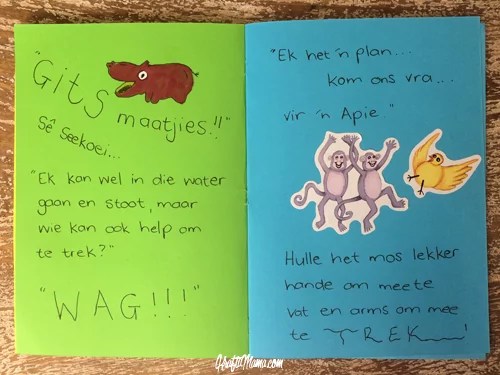 "Gits
maatjies!!"
Sê Seekoei...
"Ek kan wel in die water
gaan en stoot, maar
wie kan ook help om
te trek?"
"WAG!!!"
"Ek het 'n plan...
kom ons vra...
vir 'n Apie."
Hulle het mos lekker
hande om meete
vat en arms om mee
te TREK!
KraftiMama.com